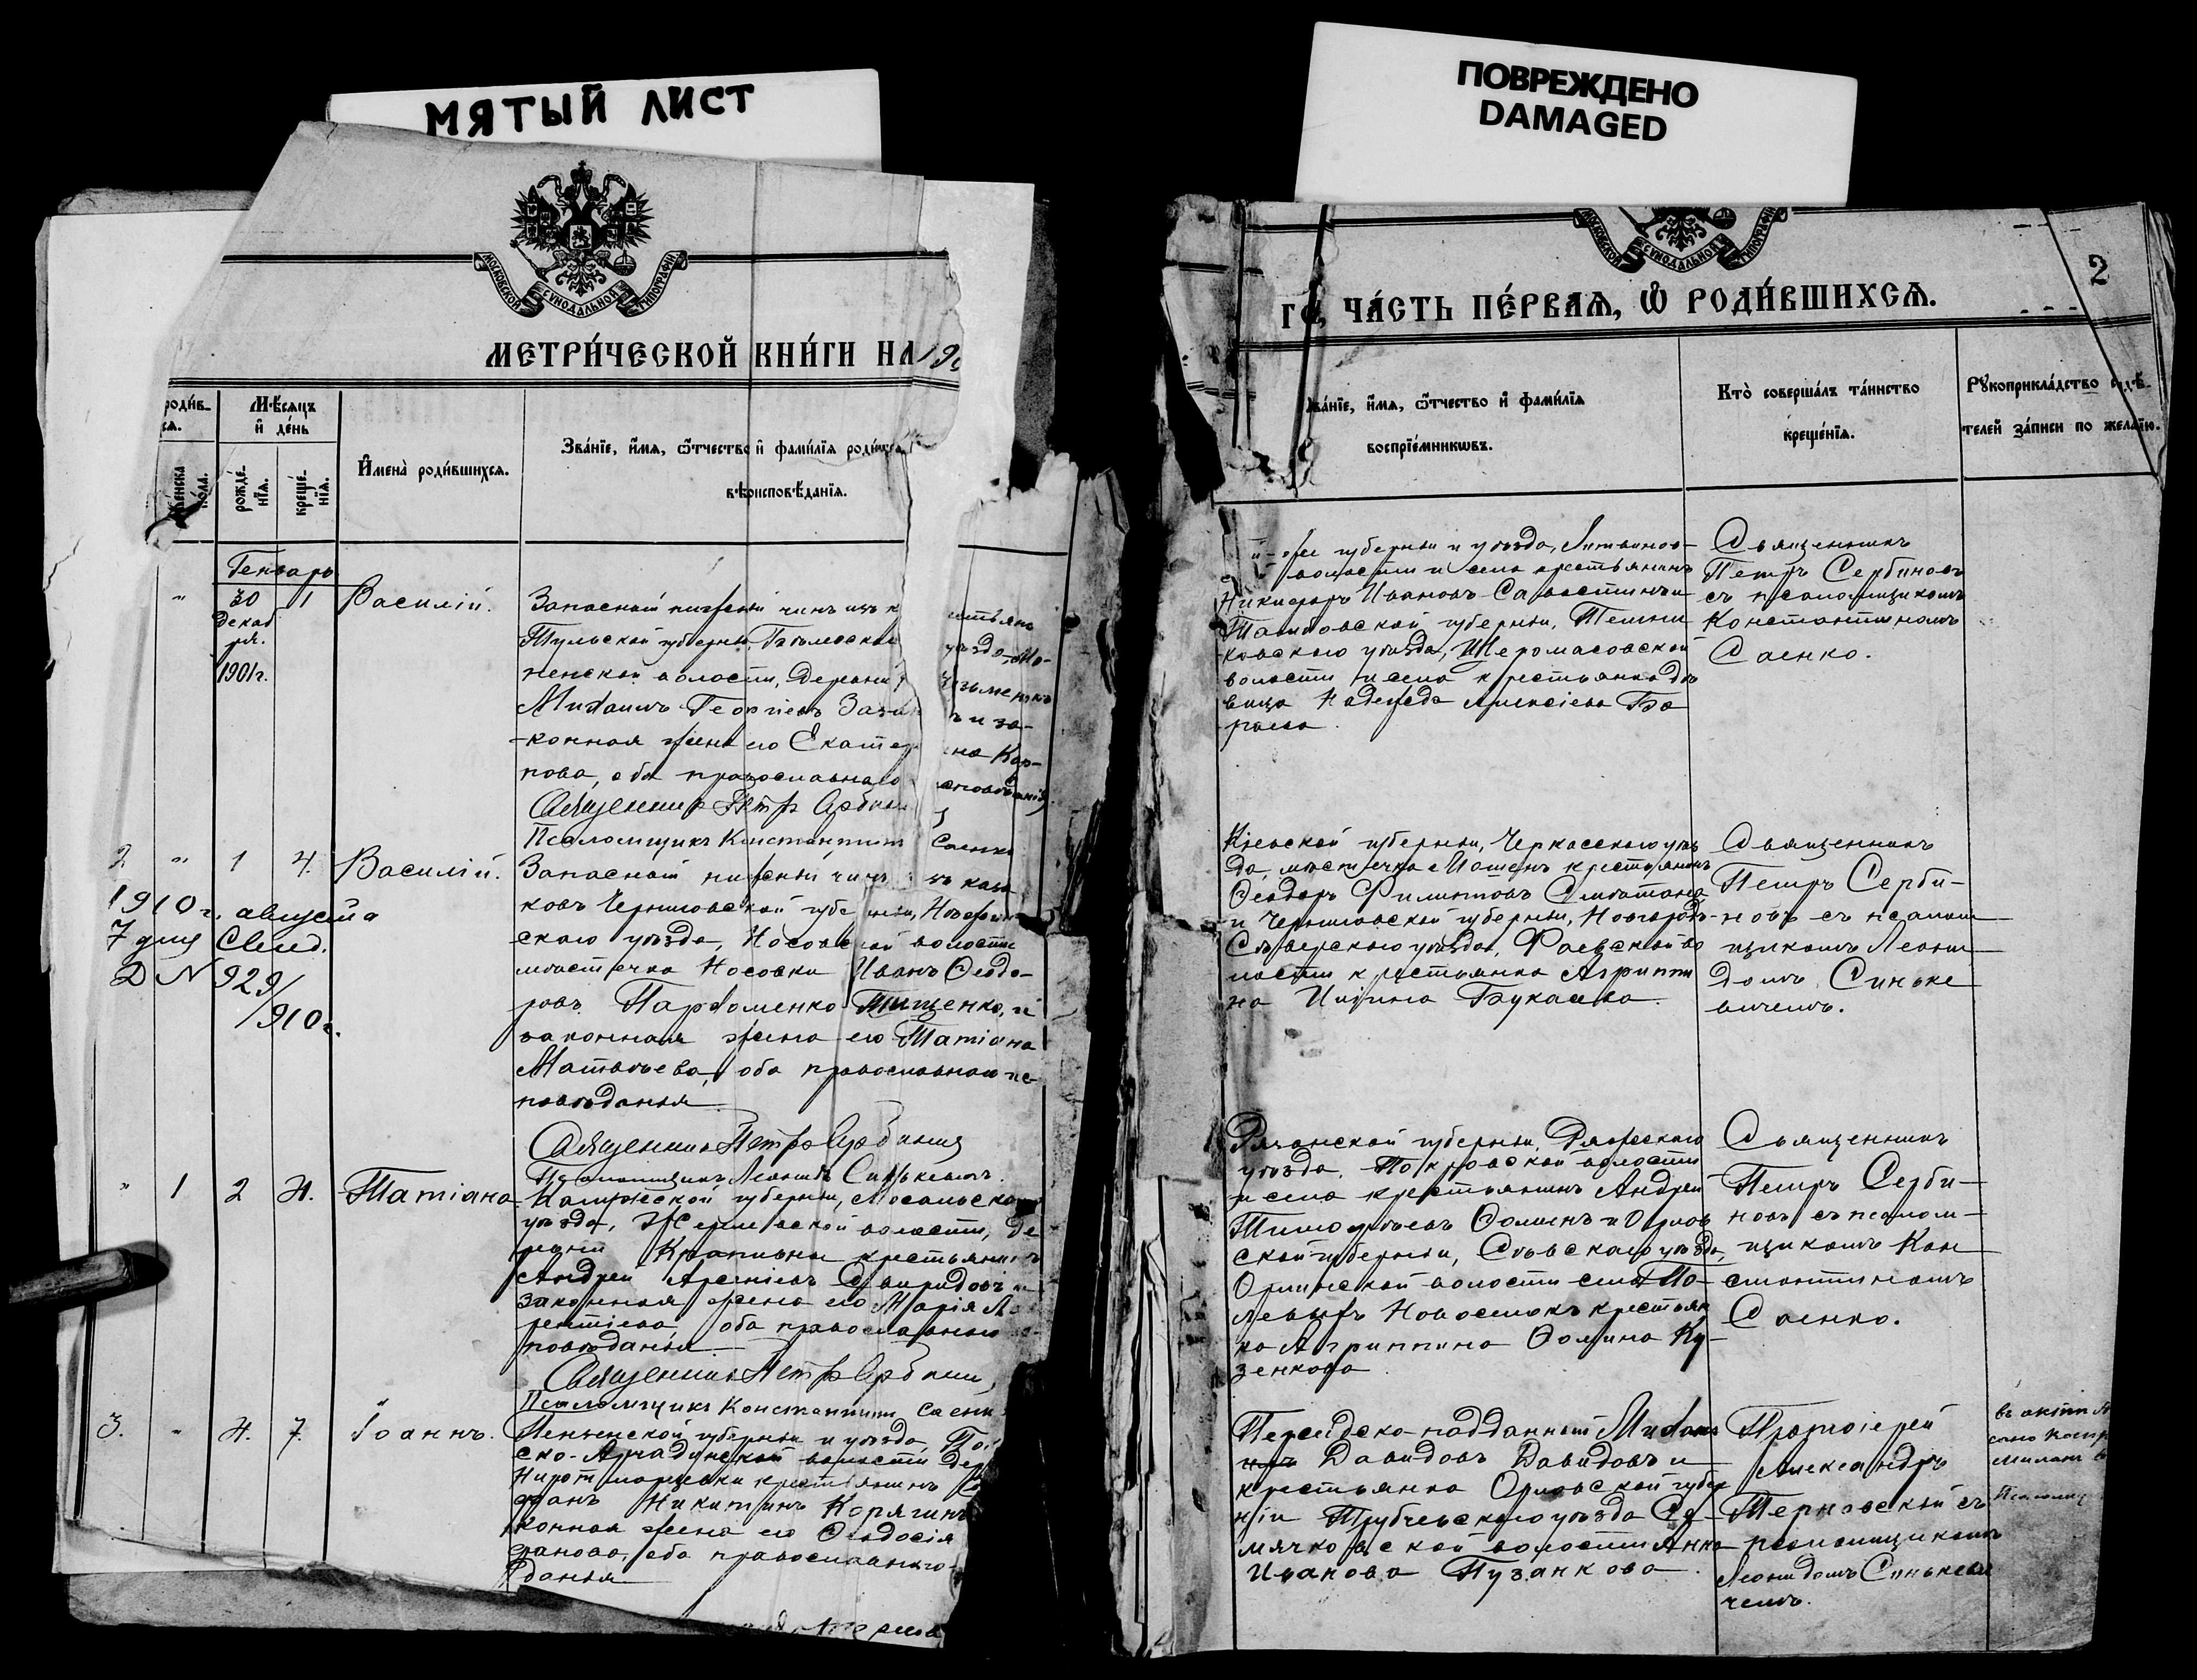 МЯТЫЙ ЛИСТ
ПОВРЕЖДЕНО
DAMAGED
МОСКОВСКОЙ СУНОДАЛЬНОЙ ТИПОГРАФІИ
МЕТРИ́ЧЕСКОЙ КНИ́ГИ НА 190
роди́в-
ся.
Мѣсяцъ
и҆ де́нь
же́нска
по́ла.
рожде́-
нїя.
креще́-
нїя.
И҆мена̀ роди́вшихся.
Зва́нїе, и҆́мя, ѻ҆́тчество и҆ фами́лїѧ роди́
вѣроисповѣ́данїя.
Генварь
"
30
Декаб
ря.
1901г.
1
Василій.
Запасный нижній чинъ изъ к
Тульской губерніи,
ненской волости, деревни
Михаилъ Георгіевъ
конная жена его Екатер
пова, оба православнаго
Священникъ Петръ Сербинов
Псаломщикъ Константинъ
стьянъ
уѣзда,
ъ и за-
на Кар-
Саенко
2
"
1
4.
Василій.
1910г. августа
7 дня Свид.
Д N 929/
/910г.
Запасный нижній чинъ
ъ каза
ковъ Черниговской губерніи, Нѣжин-
скаго уѣзда, Носовской волости
мѣстечка Носовки Иванъ Ѳеодо-
ровъ Пархоменко-Тищенко, и
законная жена его Татіана
Матвѣева, оба православнаго ис-
повѣданія
Священникъ Петръ Сербиновъ
Псаломщикъ Леонидъ Синькевич.
"
1
2
4.
Татіана
Калужской губерніи, Мосальскаго
уѣзда, волости, де
ревни Крапивны крестьянинъ
Андрей Арсеніевъ Свиридовъ и
законная жена его Марія Ла
рентіева, оба православнаго
повѣданія.
Священникъ Петръ Сербинов
Псаломщикъ Константинъ Саенк
3.
"
4.
7.
Іоаннъ.
Пензенской губерніи и уѣзда,
волости дер
крестьянинъ
фанъ Никитинъ Корягинъ
конная жена его Ѳеодосія
фанова, оба православнаго
данія
МОСКОВСКОЙ СУНОДАЛЬНОЙ ТИПОГРАФІИ
2
ГѠ, ЧА́СТЬ ПЕ́РВАѦ, Ѡ҆ РОДИ́ВШИХСѦ.
Зва́нїе, и҆́мя, ѻ҆́тчество и҆ фами́лїѧ
воспрїе́мникѡвъ.
Кто̀ соверша́лъ та́инство
креще́нїѧ.
Рꙋкоприкла́дство свидѣ́-
телей за́писи по жела́нїю.
й-же губерніи и уѣзда, Литвинов-
волости и села крестьянинъ
Никифоръ Ивановъ Савостинъ и
Тамбовской губерніи, Темни
ковскаго уѣзда,
волости и села крестьянка дѣ
вица Надежда Алексіева
Священникъ
Петръ Сербиновъ
съ псаломщикомъ
Константиномъ
Саенко.
Кіевской губерніи, Черкасскаго уѣз
да, мѣстечка крестьянинъ
Ѳеодоръ Филиповъ
и Черниговской губерніи, Новгородъ-
Сѣверскаго уѣзда, во
лости крестьянка Агриппи
на
Священникъ
Петръ Серби-
новъ съ псалом-
щикомъ Леони-
домъ Синьке
вичемъ.
Рязанской губерніи, Ряжскаго
уѣзда, Покровской волости
и села крестьянинъ Андрей
Тимофѣевъ Ѳоминъ и Орлов
ской губерніи, Сѣвскаго уѣзда,
волости села По-
Новоселокъ крестьян
ка Агриппина Ѳомина Ку-
зенкова
Священникъ
Петръ Серби-
новъ съ псалом-
щикомъ Кон-
стантиномъ
Саенко.
Персидско-подданный Михаил
Давидовъ Давидовъ и
крестьянка Орловской губер
ніи Трубчевскаго уѣзда Се-
мячковской волости Анна
Иванова Пузанкова.
Протоіерей
Александръ
Терновскій съ
псаломщикомъ
Леонидомъ Синькеви
чемъ.